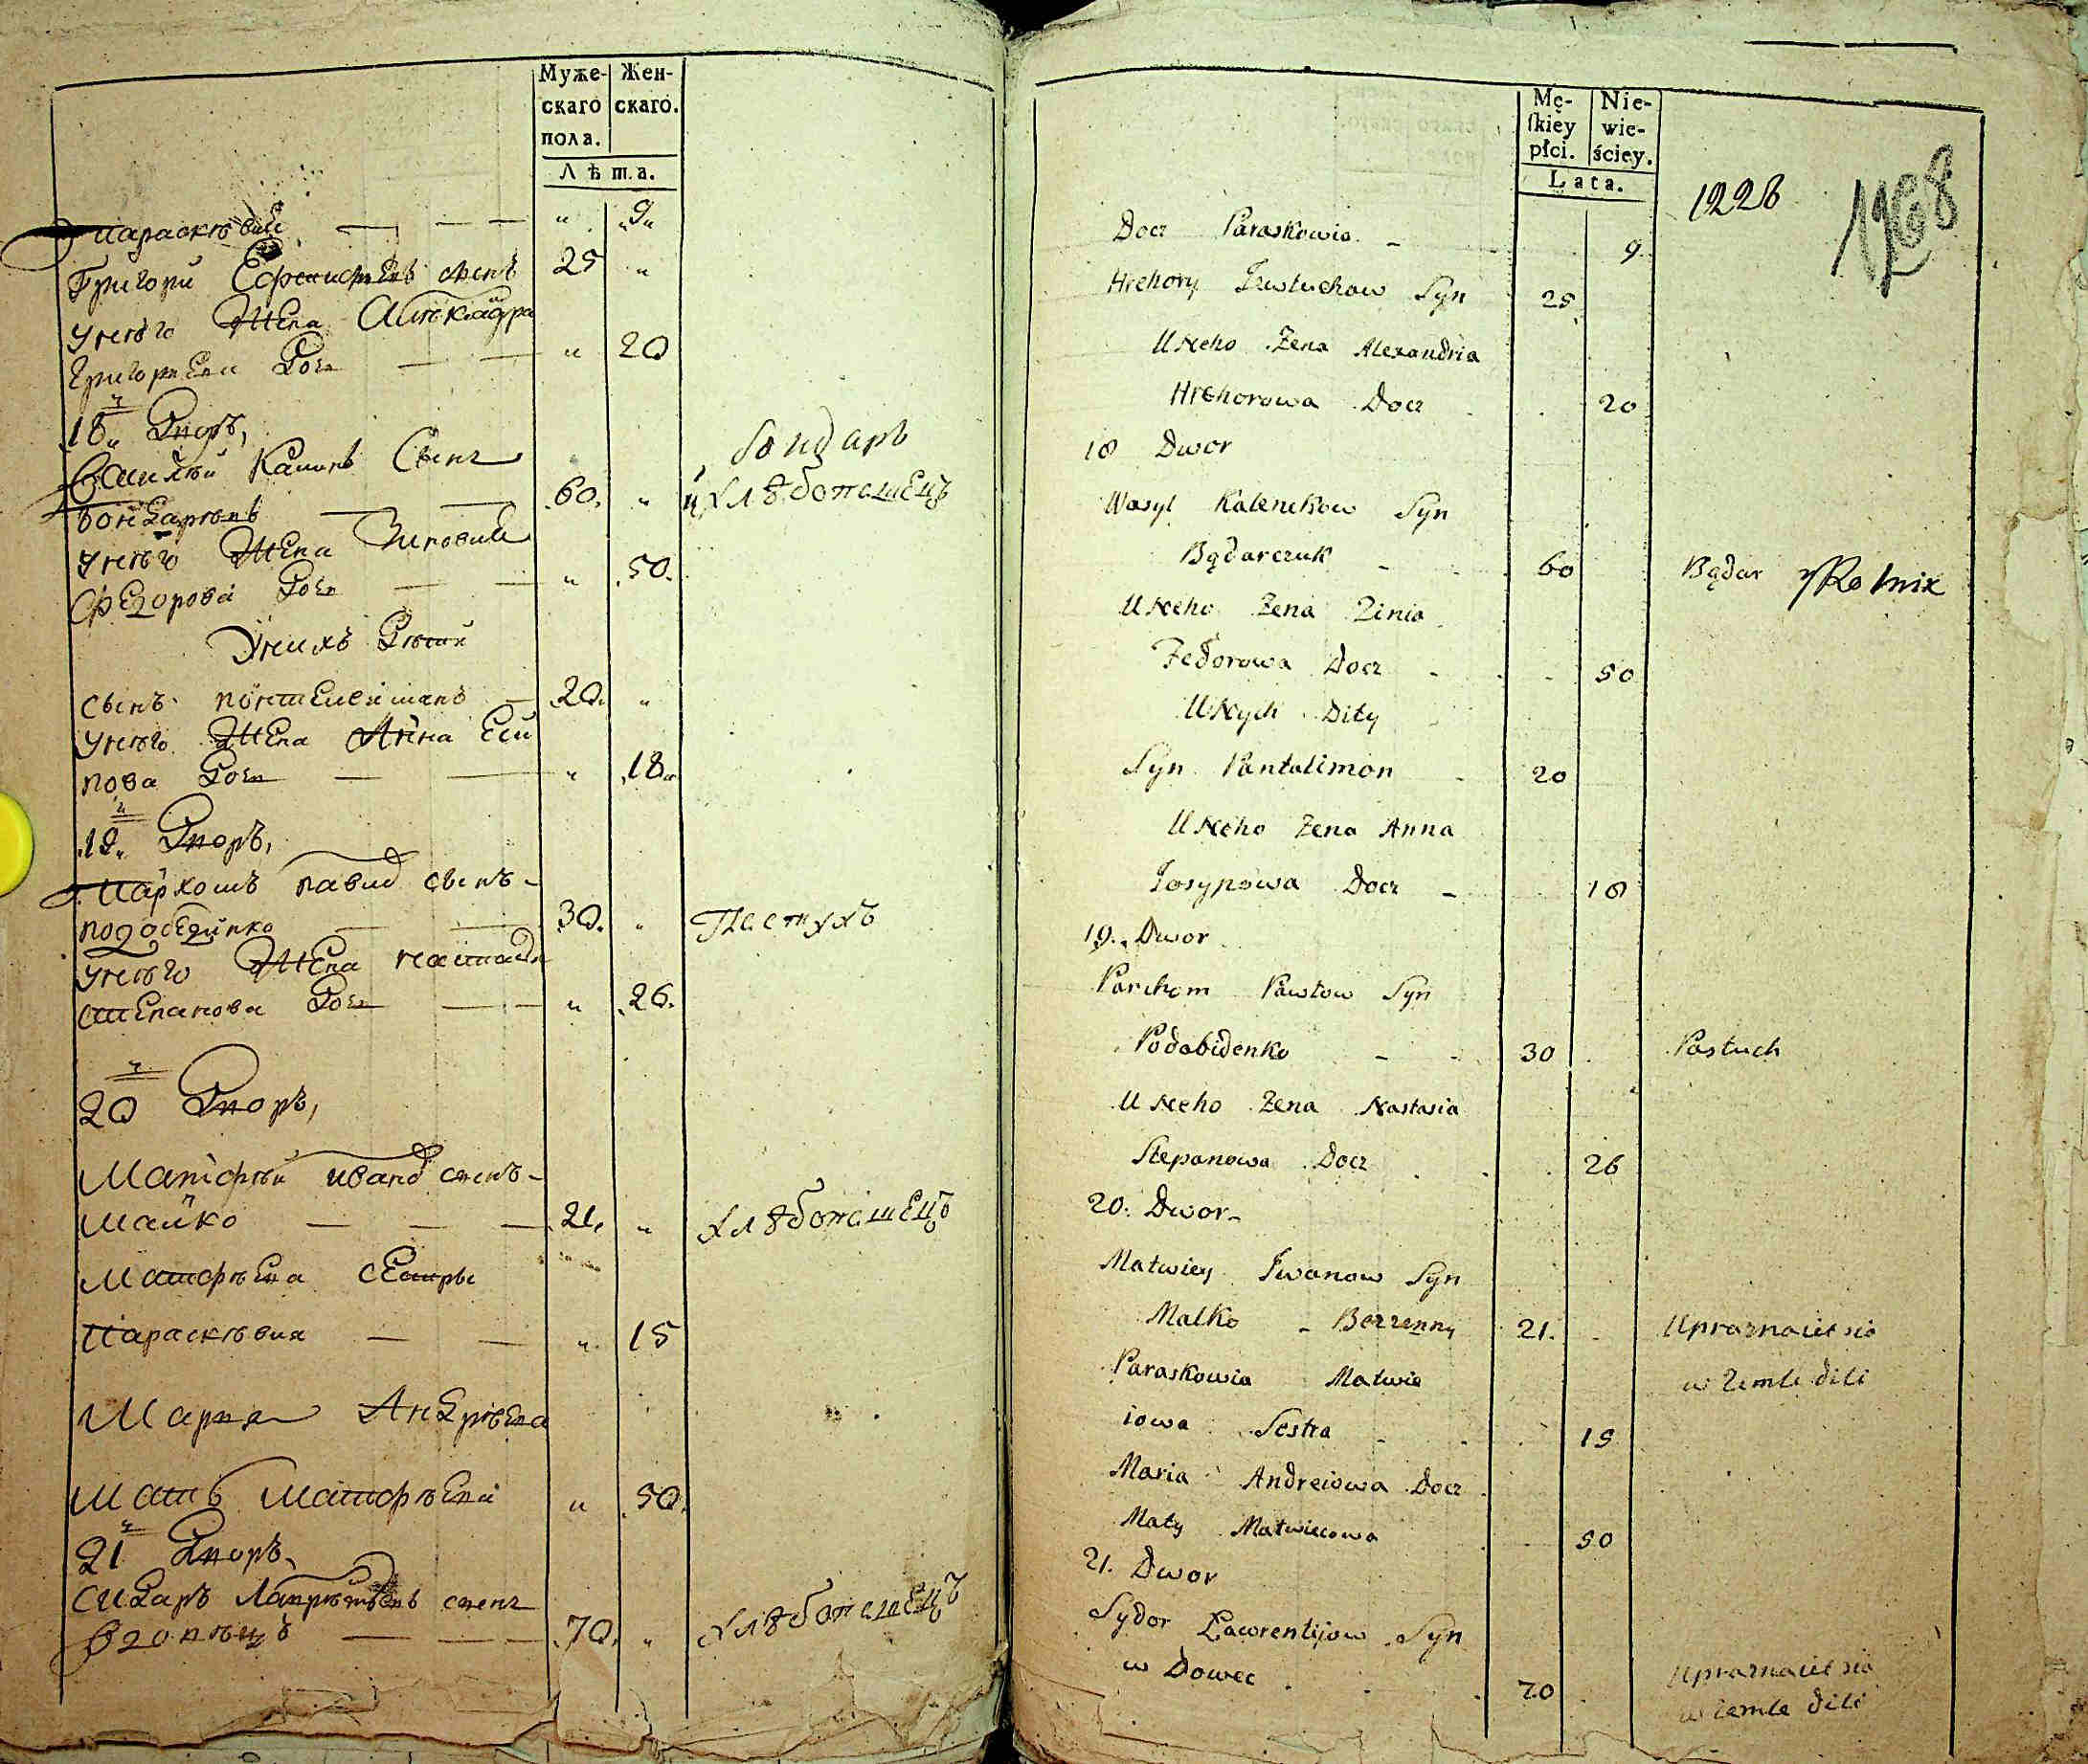 Муже-
скаго
пола.
Жен-
скаго.
Лѣта.
Параскѣвия — — — „ 9„
Григори сынъ 25 „
Унего Жена Александра
Григорьева Доч — — „ 20
18й Дворъ,
Василѣй Калинъ Сынъ бондаръ
Бондарчукъ — — 60. „ и хлѣбопашецъ
Унего Жена Зиновия
Федорова Доч — — „ 50.
Унихъ Дѣти
сынъ понтелеимонъ — 20. „
Унего Жена Анна Еси
пова Доч — — „ 18„
19й Дворъ,
Пархомъ павлов сынъ -
подобединко — — 30. „ Пастухъ
Унего Жена настасия
степанова Доч — — „ 26.
20й Дворъ,
Матфѣй иванов сынъ -
Малко — — — 21. „ хлѣбопашецъ
Матфѣева сестра
Параскѣвия — — „ 15
Мария Андрѣева
Мать Матфѣева „ 50.
21й Дворъ
Сидаръ Лаврѣнтьевъ сынъ
вдовѣцъ — — — 70. „ хлѣбопашецъ
Mę-
skiey
płci.
Nie-
wie-
ściey.
Lata.
1228
Docz Paraskowia - 9
Hrehory Syn 25
U Neho Zena Alexandria
Hrehorowa Docz 20
18 Dwor
Wasyl Kalenikow Syn
Bądarczuk - 60 Bądar y Rolnik
U Neho Zena Zinia
Fedorowa Docz - 50
U Nych Dity
Syn Pantalimon - 20
U Neho Zena Anna
Josypowa Docz - 18
19. Dwor
Parchom Pawłow Syn
Podobidenko - - 30 Pastuch
U Neho Zena Nastasia
Stepanowa Docz 26
20. Dwor -
Matwiey Iwanow Syn
Malko - Bezzenny 21. - Upraznaiet sia
w Zemle dili
Paraskowia Matwie
iowa Sestra - 15
Maria Andreiowa Docz
Maty Matwieiowa 50
21. Dwor
Sydor Ławrentijow Syn
w Dowec 70 Upraznaiet sia
w Zemle dili